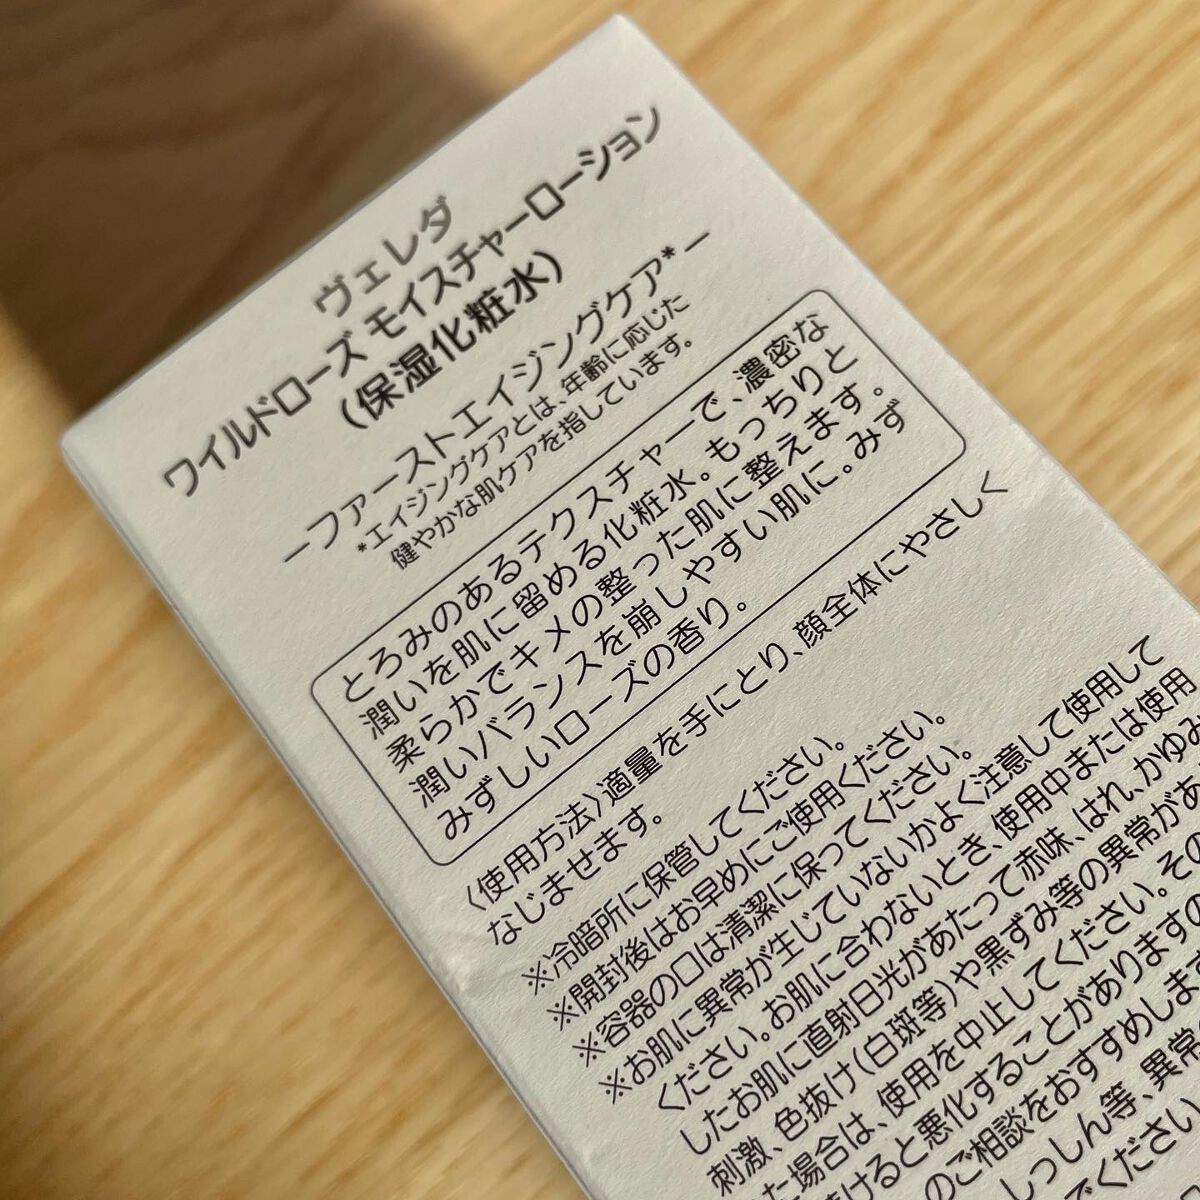 ヴェレダ
ワイルドローズ モイスチャーローション
(保湿化粧水)
―ファーストエイジングケア*―
*エイジングケアとは、年齢に応じた
健やかな肌ケアを指しています。
とろみのあるテクスチャーで、濃密な
潤いを肌に留める化粧水。もっちりと
柔らかでキメの整った肌に整えます。
潤いバランスを崩しやすい肌に。みず
みずしいローズの香り。
〈使用方法〉適量を手にとり、顔全体にやさしく
なじませます。
※冷暗所に保管してください。
※開封後はお早めにご使用ください。
※容器の口は清潔に保ってください。
※お肌に異常が生じていないかよく注意して使用して
ください。お肌に合わないとき、使用中または使用
したお肌に直射日光があたって赤味、はれ、かゆみ
刺激、色抜け(白斑等)や黒ずみ等の異常があ
た場合は、使用を中止してください。その
けると悪化することがありますの
のご相談をおすすめします
しっしん等、異常
でください